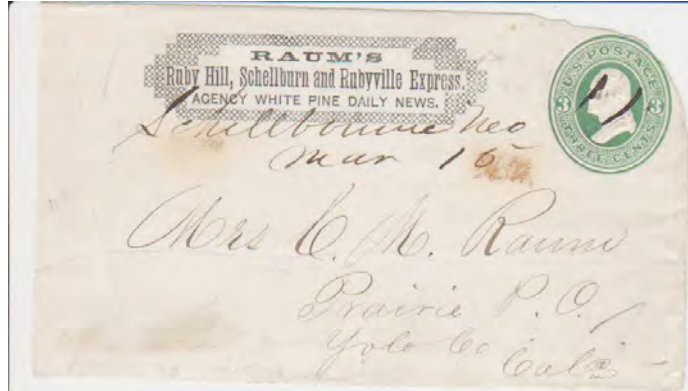 RAUM'S
Ruby Hill, Schellburn and Rubyville Express.
AGENCY WHITE PINE DAILY NEWS.
U.S. POSTAGE
3 3
THREE CENTS
Schellbourne Nev
Mar 15
Mrs C. M. Raum
Prairie P. O.
Yolo Co
Cala